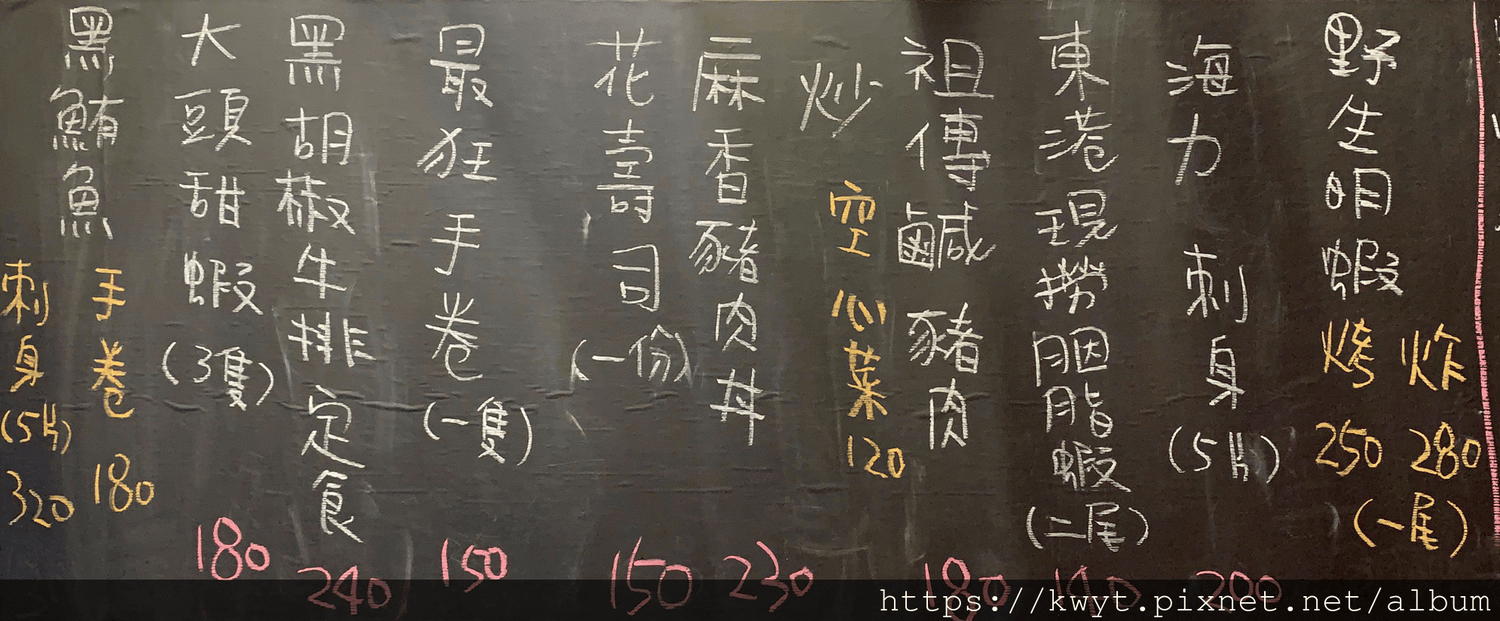 野生明蝦
烤 250
炸 280
(一尾)
海力 刺身 (5片) 200
東港現撈胭脂蝦 (二尾) 190
祖傳鹹豬肉 180
炒空心菜 120
麻香豬肉丼 230
花壽司 (一份) 150
最狂手卷 (一隻) 150
黑胡椒牛排定食 240
大頭甜蝦 (3隻) 180
黑鮪魚
手卷 180
刺身 (5片) 320
https://kwyt.pixnet.net/album